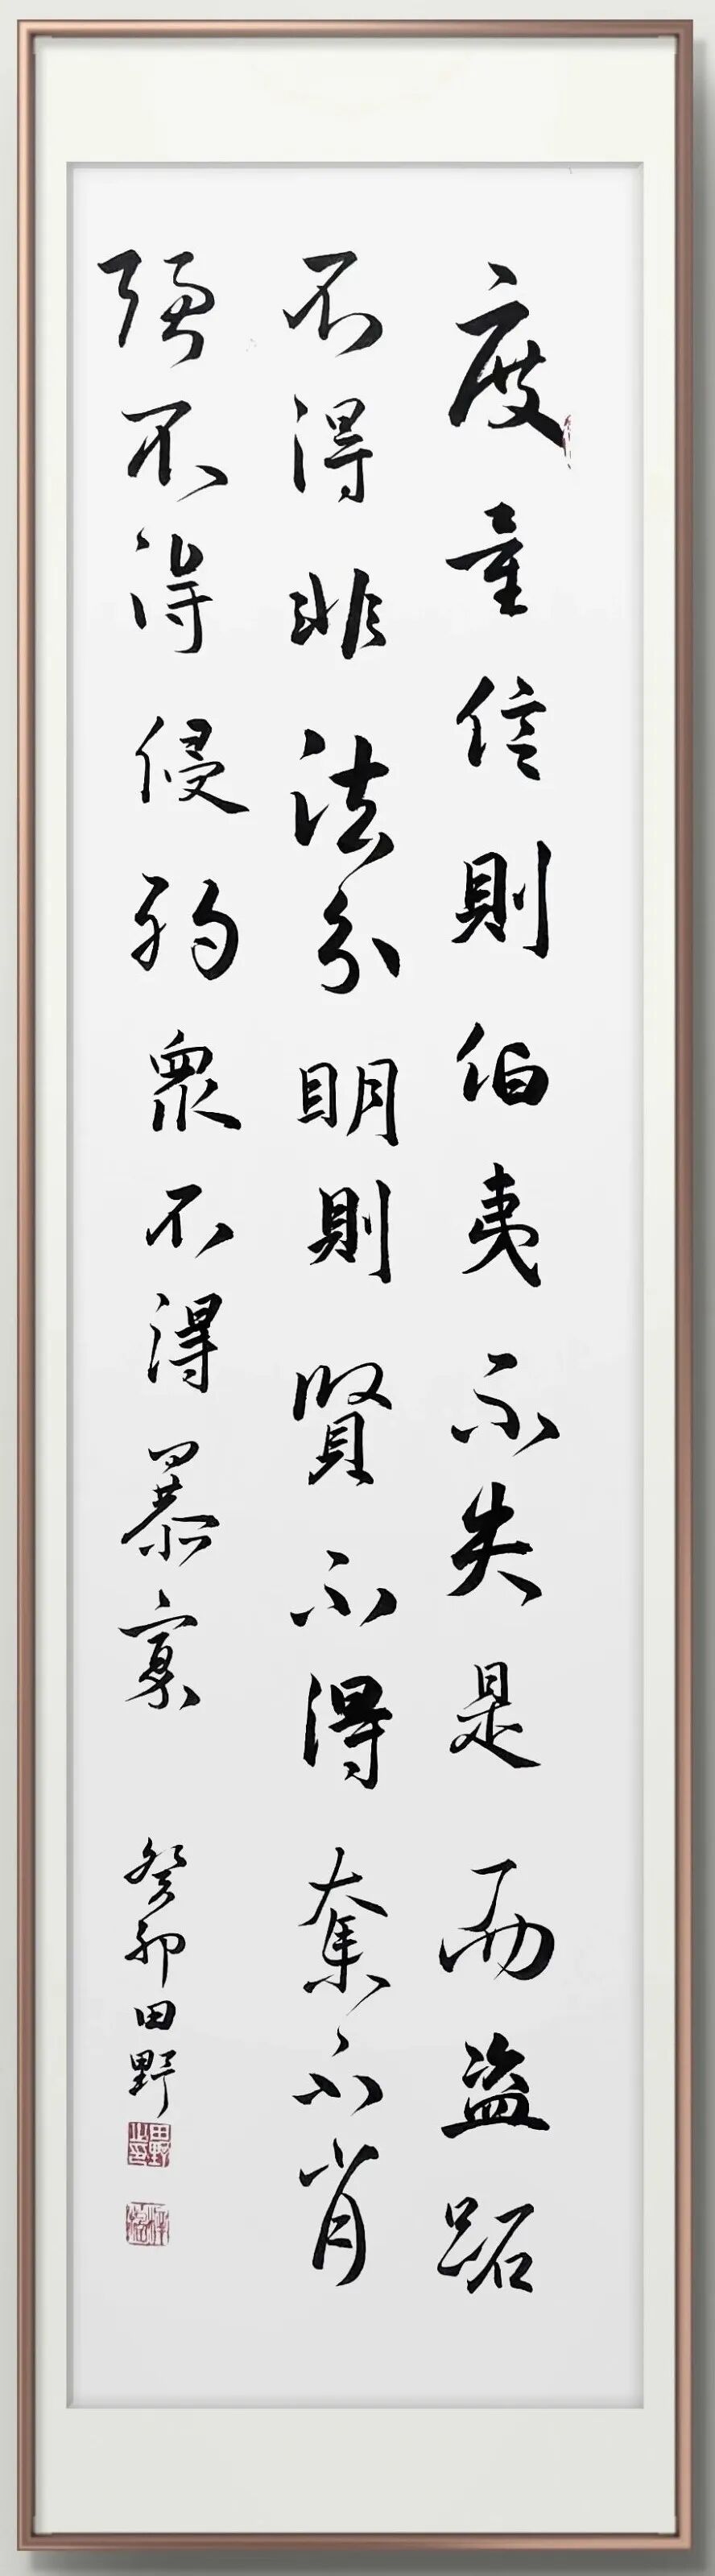 度量信則伯夷不失是而盜跖
不得非法分明則賢不得奪不肖
強不得侵弱眾不得暴寡
癸卯田野
田野之印